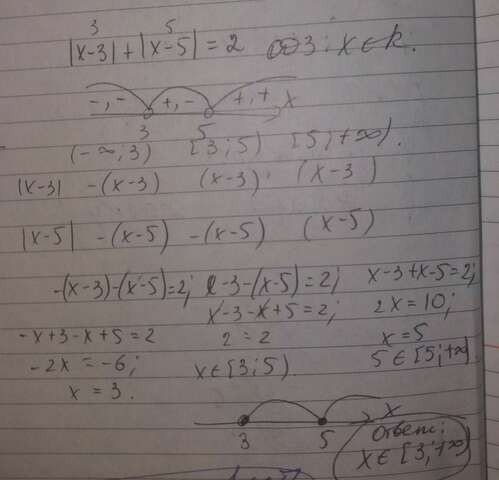 3 5
|x-3| + |x-5| = 2 ОДЗ: x∈R.
-, - +, - +, + x
3 5
(-∞; 3) [3; 5) [5; +∞).
|x-3| -(x-3) (x-3) (x-3)
|x-5| -(x-5) -(x-5) (x-5)
-(x-3)-(x-5)=2; x-3-(x-5)=2; x-3+x-5=2;
x-3-x+5=2; 2x=10;
-x+3-x+5=2 2=2 x=5
-2x=-6; x∈[3;5). 5∈[5;+∞).
x=3.
x
3 5
Ответ:
x∈[3;+∞)